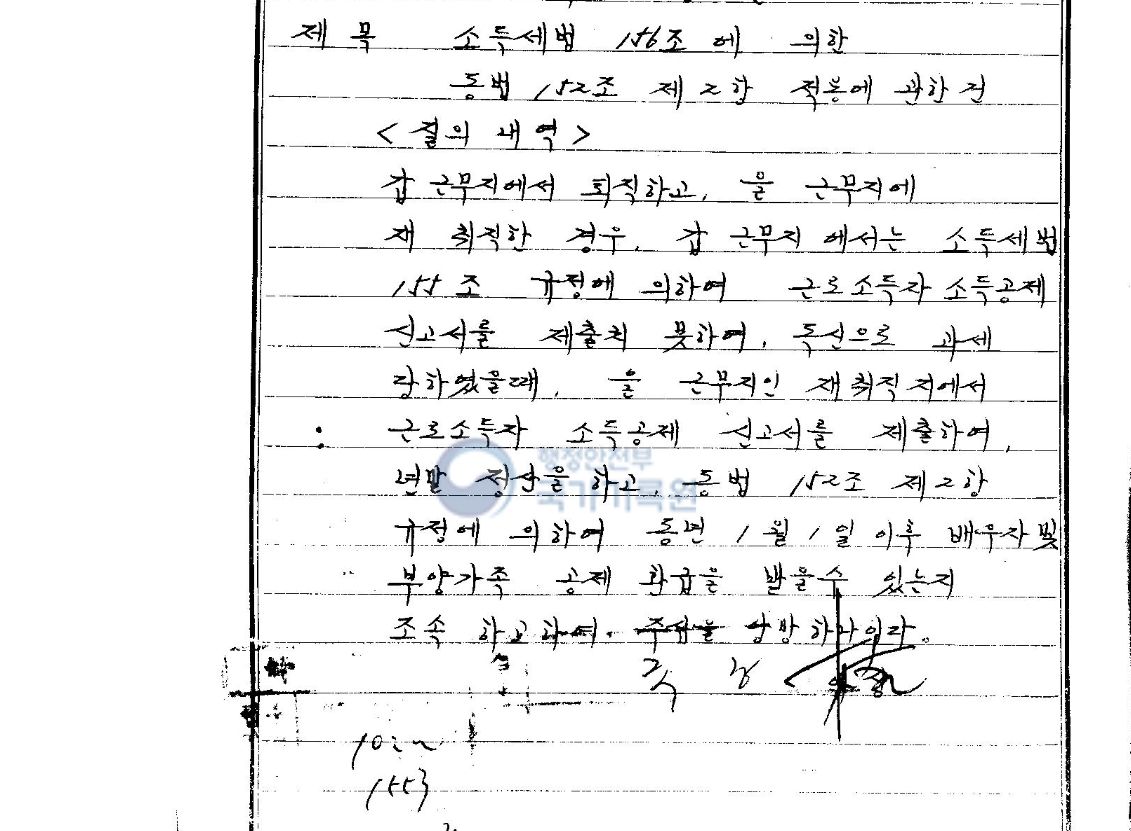 제 목 소득세법 156조에 의한
동법 152조 제2항 적용에 관한 건
<질의 내역>
갑 근무지에서 퇴직하고, 을 근무지에
재 취직한 경우, 갑 근무지에서는 소득세법
155조 규정에 의하여 근로소득자 소득공제
신고서를 제출치 못하여, 독신으로 과세
당하였을때, 을 근무지인 재취직지에서
근로소득자 소득공제 신고서를 제출하여,
년말 정산을 하고, 동법 152조 제2항
규정에 의하여 동년 1월 1일 이후 배우자 및
부양가족 공제 환급을 받을수 있는지
조속 하고하여.
행정안전부
국가기록원